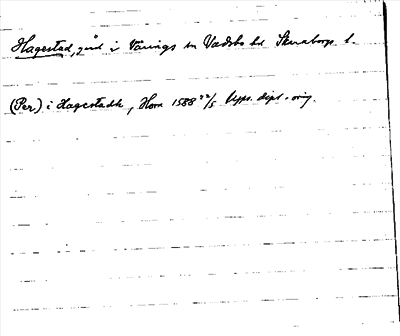 Hagestad, gård i Värings sn Vadsbo hd Skaraborgs l.
(Per) i Hagestadh, Horn 1588 22/5 Upps. dipl. orig.